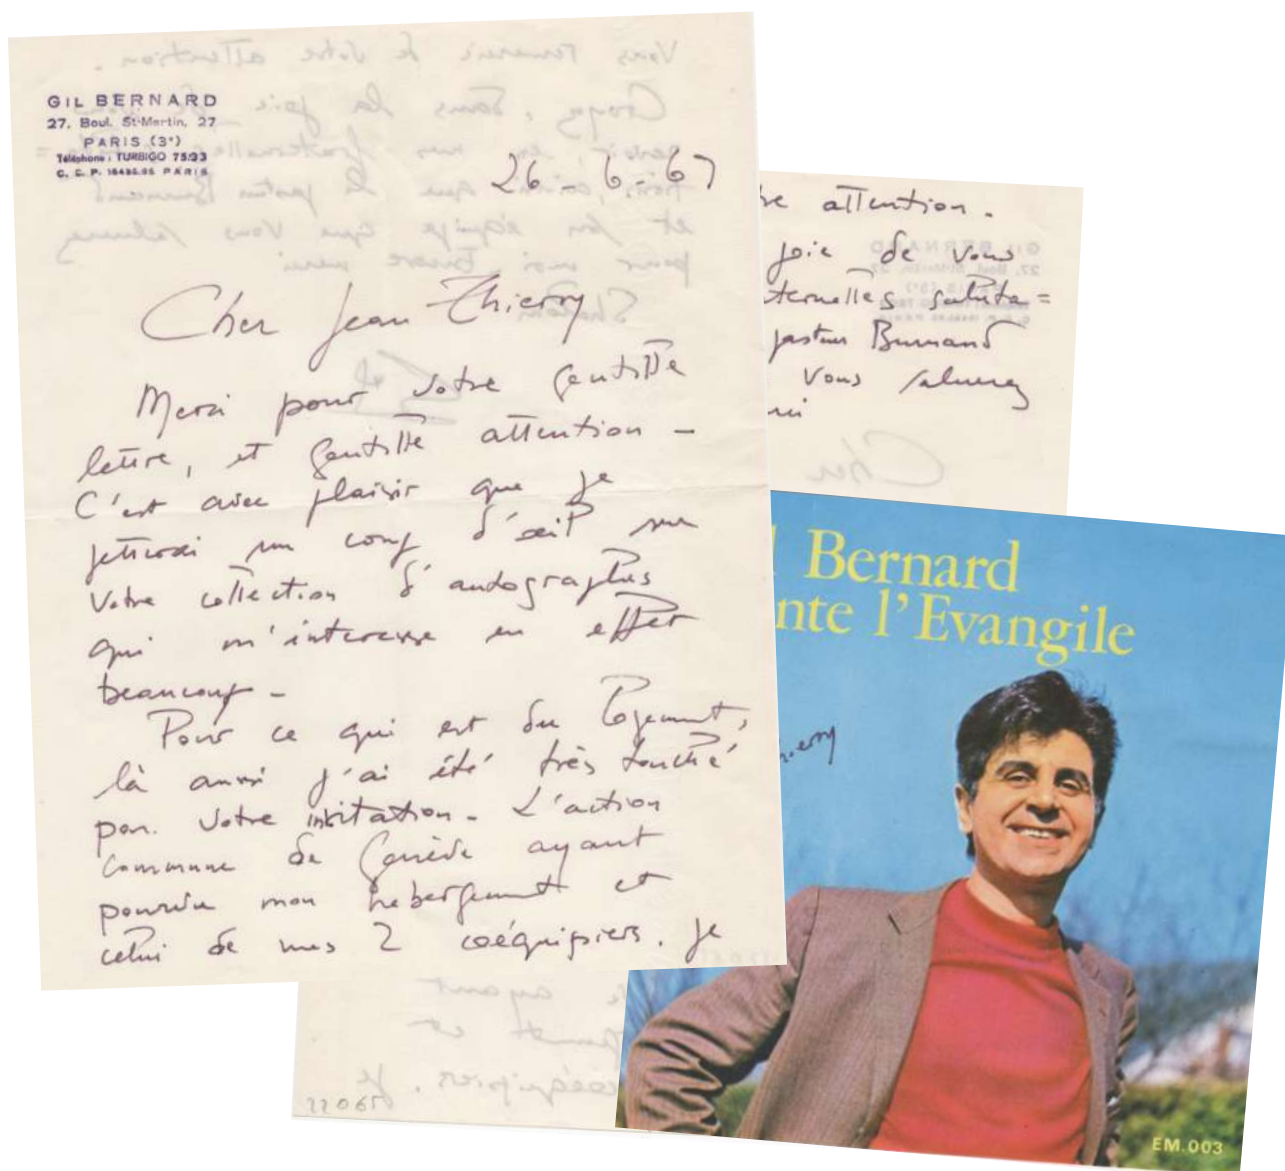 GIL BERNARD
27, Boul. St-Martin, 27
PARIS (3e)
Téléphone : TURBIGO 75-33
C. C. P. PARIS
26-6-67
Cher Jean Thierry
Merci pour votre gentille
lettre, et gentille attention -
C'est avec plaisir que je
jetterai un coup d'œil sur
votre collection d'autographes
qui m'interesse en effet
beaucoup -
Pour ce qui est du logement,
là aussi j'ai été très touché
par votre invitation - L'action
commune de Genève ayant
pourvu mon hebergement et
celui de mes 2 coéquipiers. je
attention.
joie de vous
ternelles saluta=
pasteur Burnand
vous saluerez
Bernard
nte l'Evangile
hierry
EM.003
22065